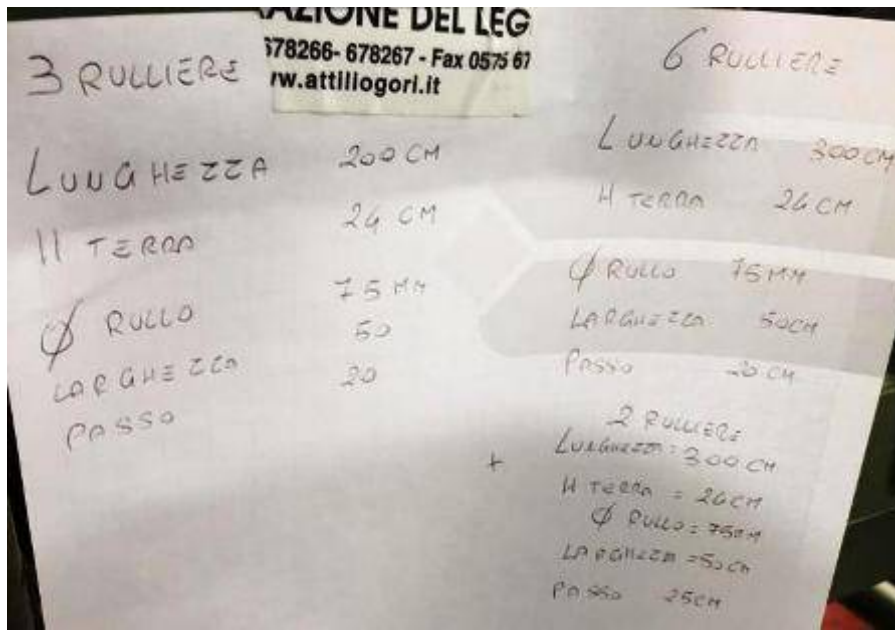 AZIONE DEL LEG
578266- 678267 - Fax 0575 67
ww.attiliogori.it
3 RULLIERE
LUNGHEZZA 200 CM
H TERRA 24 CM
Ø RULLO 75 MM
LARGHEZZA 50
PASSO 20
6 RULLIERE
LUNGHEZZA 300 CM
H TERRA 24 CM
Ø RULLO 75 MM
LARGHEZZA 50 CM
PASSO 20 CM
+ 2 RULLIERE
LUNGHEZZA = 300 CM
H TERRA = 24 CM
Ø RULLO = 75 MM
LARGHEZZA = 50 CM
PASSO 25 CM